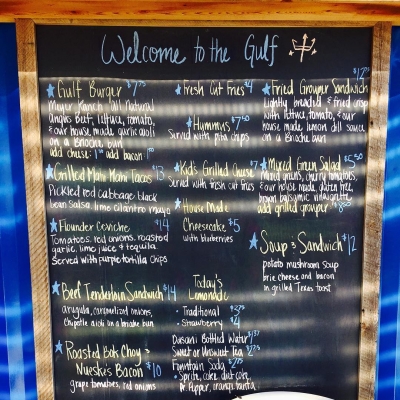 Welcome to the Gulf
Gulf Burger $7.75
Meyer Ranch All Natural
Angus Beef, lettuce, tomato,
& our house made garlic aioli
on a Brioche bun
add cheese: 1.00 add bacon 1.50
Grilled Mahi Mahi Tacos $13
Pickled red cabbage black
bean salsa, lime cilantro mayo
Flounder Ceviche $14
Tomatoes, red onions, roasted
garlic, lime juice & tequila
served with purple tortilla chips
Beef Tenderloin Sandwich $14
arugula, caramelized onions,
chipotle aioli on a brioche bun
Roasted Bok Choy &
Nueskes Bacon $10
grape tomatoes, red onions
Fresh Cut Fries $4
Hummus $7.50
Served with pita chips
Kid's Grilled Cheese $7
Served with fresh cut fries
House Made
Cheesecake $5
with blueberries
Today's
Lemonade
- Traditional $3.75
- Strawberry $4
Dasani Bottled Water $1.37
Sweet or Unsweet Tea $2.75
Fountain Soda $2.75
- Sprite, coke, diet coke,
Dr. Pepper, orange fanta
$12.75
Fried Grouper Sandwich
Lightly breaded & fried crisp
with lettuce, tomato, & our
house made lemon dill sauce
on a Brioche bun
Mixed Green Salad $5.50
Mixed greens, cherry tomatoes,
& our house made, gluten free,
brown balsamic vinaigrette
add grilled grouper
Soup & Sandwich $12
potato mushroom soup
brie cheese and bacon
in grilled Texas toast